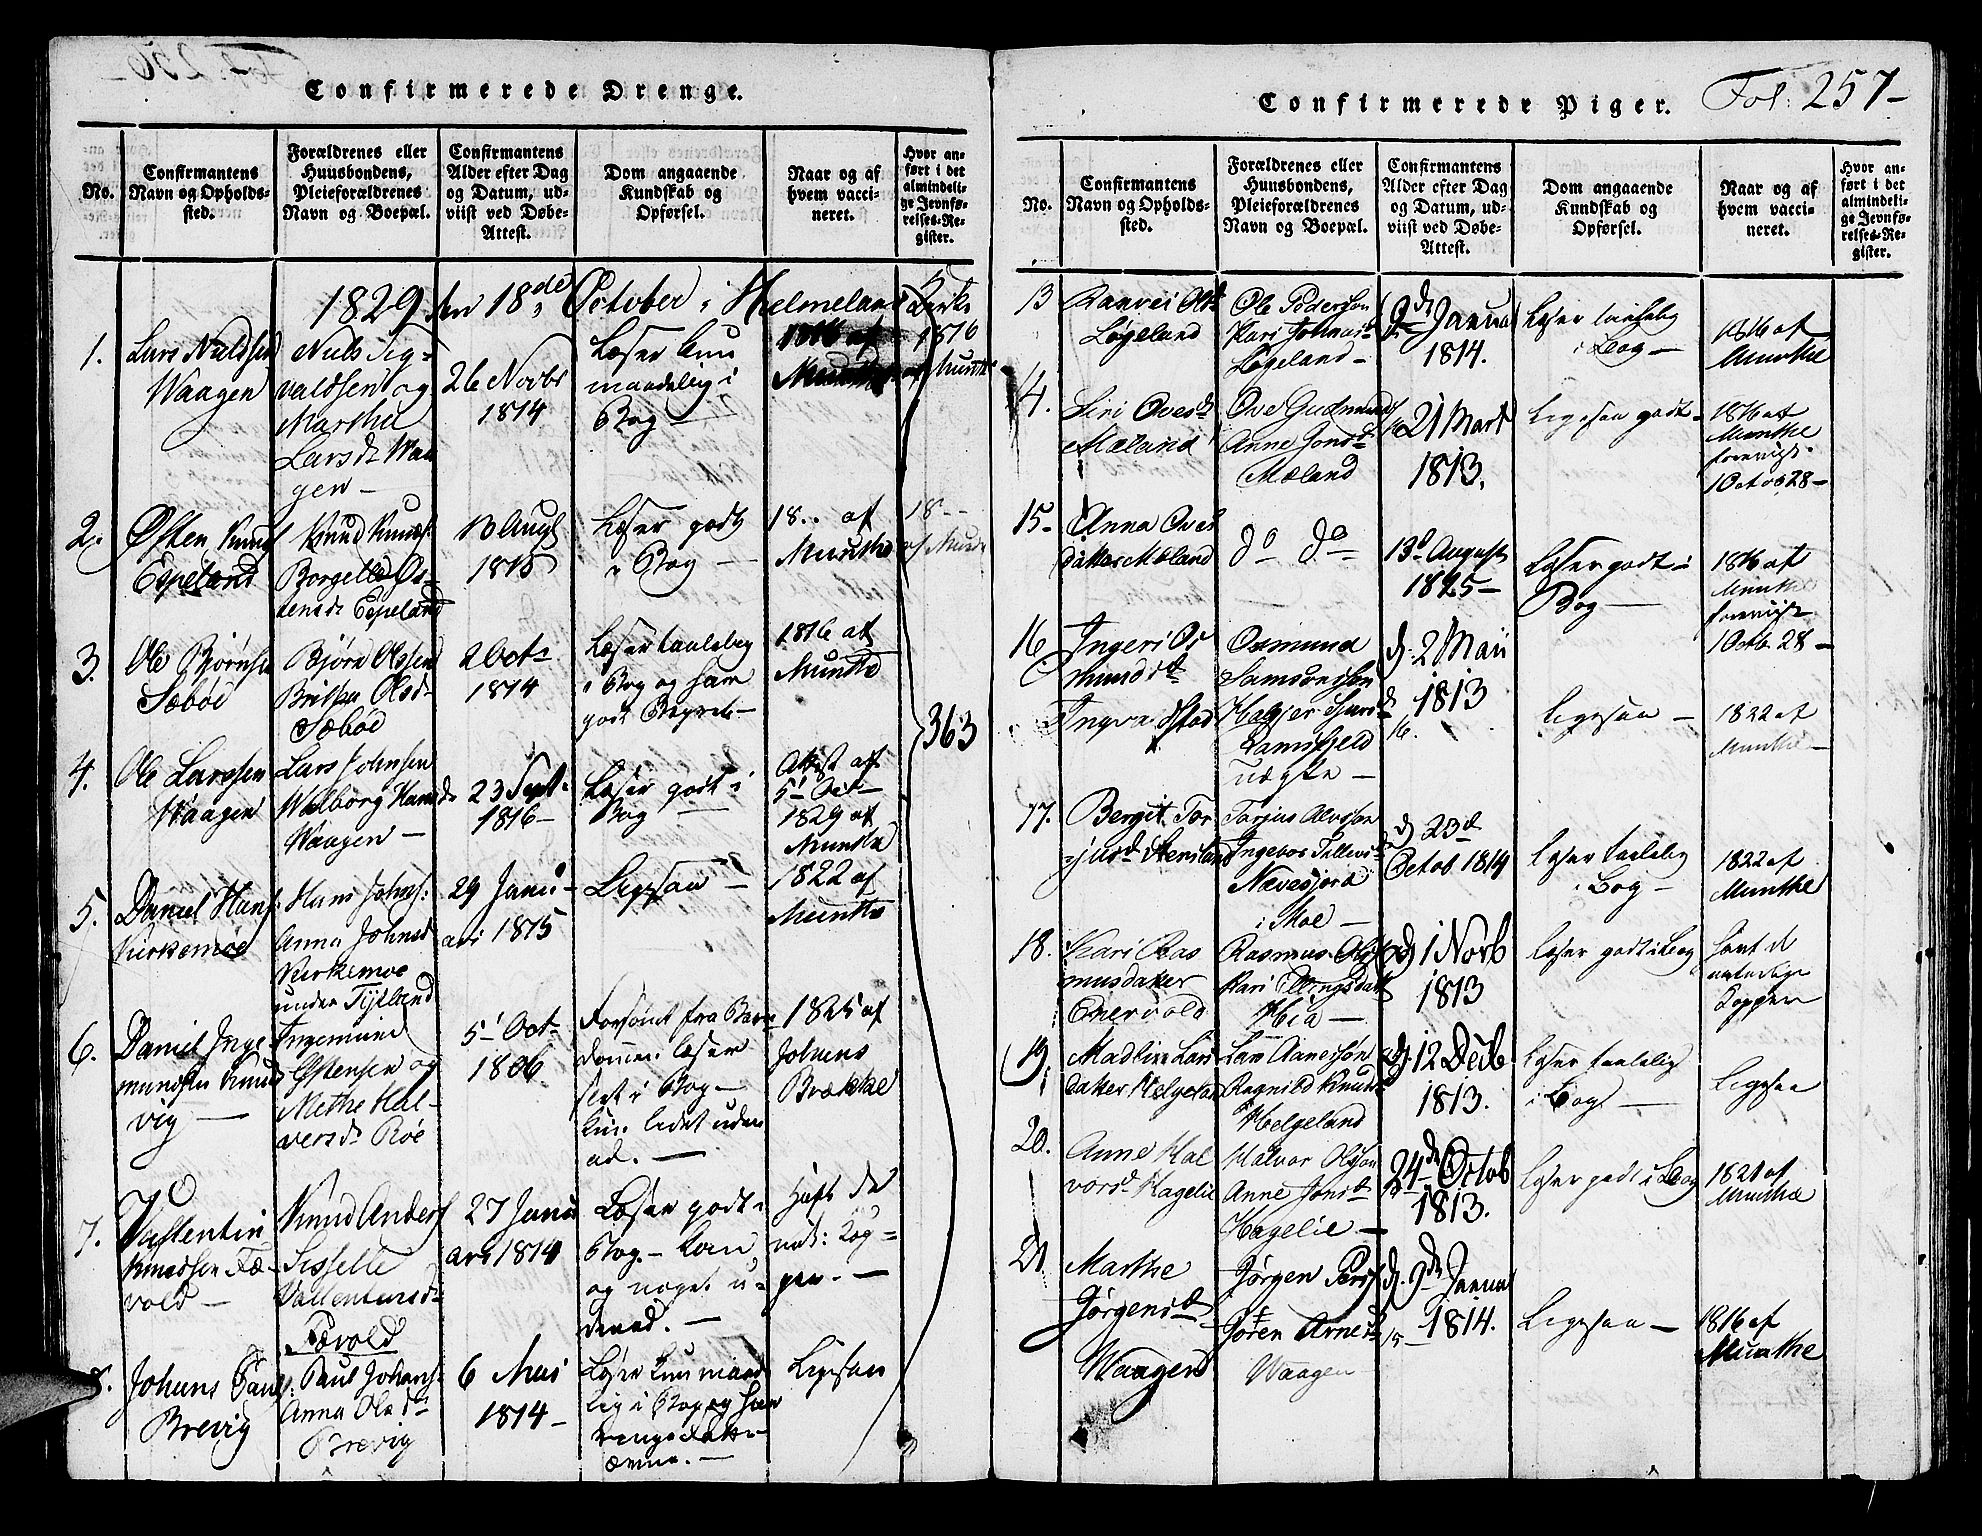 Confirmerede Drenge.
No.
Confirmantens
Navn og Opholds-
sted.
Forældrenes eller
Huusbondens,
Pleieforældrenes
Navn og Boepæl.
Confirmantens
Alder efter Dag
og Datum, ud-
viist ved Døbe-
Attest.
Dom angaaende
Kundskab og
Opførsel.
Naar og af
hvem vacci-
neret.
Hvor an-
ført i det
almindeli-
ge Jevnfø-
relses-Re-
gister.
1829 den 18de October i Helmeland Kirke
1.
Lars Nielsen
Waagen
Niels Sig-
valdsen og
Marthe
Larsd. Waa
gen -
26 Novbr
1814
Læser kun
maadelig i
Bog -
1816 af
Munthe
1816
af Munthe
2.
Østen Knuds
Espeland
Knud Knuds:
Borgelle Øs-
tensd: Espeland
13 Augs
1815
Læser godt
i Bog -
18.. af
Munthe
18 - -
af Munthe
3.
Ole Bjørnsen
Sæbøe
Bjørn Olssen
Britha Olsd:
Sæbøe
2 Oct:
1814
Læser taalelig
i Bog og har
godt Begreb -
1816 af
Munthe
363
4.
Ole Larssen
Waagen
Lars Johnsen
Walborg Hansd:
Waagen -
23 Sept:
1816 -
Læser godt i
Bog -
Attest af
5' Oct
1829 af
Munthe
5.
Daniel Hans:
Kirkemoe
Hans Johns:
Anna Johnsd
Kirkemoe
under Tytland
29 Janu-
ari 1815
Ligesaa -
1822 af
Munthe
6.
Daniel Inge
mundsen Knud
vig -
Ingemund
Østensen og
Methe Hal-
versd: Røe
5' Oct:
1806
Forsømt fra Barn
dommen læser
slet i Bog -
kun lidet uden
ad. -
1825 af
Johnns
Brækkee
7.
Vallentin
Knudsen Fæ-
vold -
Knud Anders
Sisselle
Vallentinsd:
Fævold
27 Janu
ari 1814
Læser godt i
Bog - kan
og noget u-
denad. -
Haft de
nat: Kop-
per. -
8.
Johans Pauls:
Brevig
Paul Johans:
Anna Olsd:
Brevig
6 Mai
1814 -
Læser kun maade
lig i Bog og har
Ligesaa
Confirmerede Piger.
Fol: 257 -
No.
Confirmantens
Navn og Opholds-
sted.
Forældrenes eller
Huusbondens,
Pleieforældrenes
Navn og Boepæl.
Confirmantens
Alder efter Dag
og Datum, ud-
viist ved Døbe-
Attest.
Dom angaaende
Kundskab og
Opførsel.
Naar og af
hvem vacci-
neret.
Hvor an-
ført i det
almindeli-
ge Jevnfø-
relses-Re-
gister.
13
Raavei Olsd
Løgeland
Ole Pederson
Kari Johnsd:
Løgeland -
9de Janua
1814.
Læser taalelig
i Bog -
1816 af
Munthe
14.
Siri Ovesd
Mæland
Ove Gudmunds
Anne Jonsd
Mæland
21 Mart
1813.
Ligesaa godt -
1816 af
Munthe
foreviist
1 Octob 28 -
15 -
Anna Oves
datter Mæland
do do
13de August
1825 -
Læser godt i
Bog -
1816 af
Munthe
foreviist
1 Octb. 28 -
16
Ingeri Os
mundsd
Ingvaldstad
Osmund
Samsonsson
Ramsfjeld
uægte -
d. 2 Maii
1813
Ligesaa -
1822 af
Munthe -
17.
Bergit Tor
jusd. Steinsland
Torjus Alvsson
Ingebor Tallevsd
Nævesjord
i Moe -
d 23d
Octob. 1814
Læser taalelig
i Bog -
1822 af
Munthe
18.
Kari Ras
musdatter
Enervold
Rasmus Ols
Kari Ellingsdatt
Hiia -
d 1 Novb
1813
Læser godt i Bog
havt de
naturlige
Kopper
19.
Madlin Lars
datter Helgeland
Lars Aanersøn
Ragnild Knuds
Helgeland
d. 12 Decb
1813.
Læser taalelig
i Bog -
Ligesaa
20.
Anne Hal
vorsd. Hagelie
Halvor Olsøn
Anne Jonsd
Hagelie -
24de Octob
1813.
Læser godt i Bog
1821 af
Munthe
21
Marthe
Jørgensd
Waagen
Jørgen Pers
Jøren Arnesd
Waagen
d. 9de Janua
1814.
Ligesaa -
1816 af
Munthe